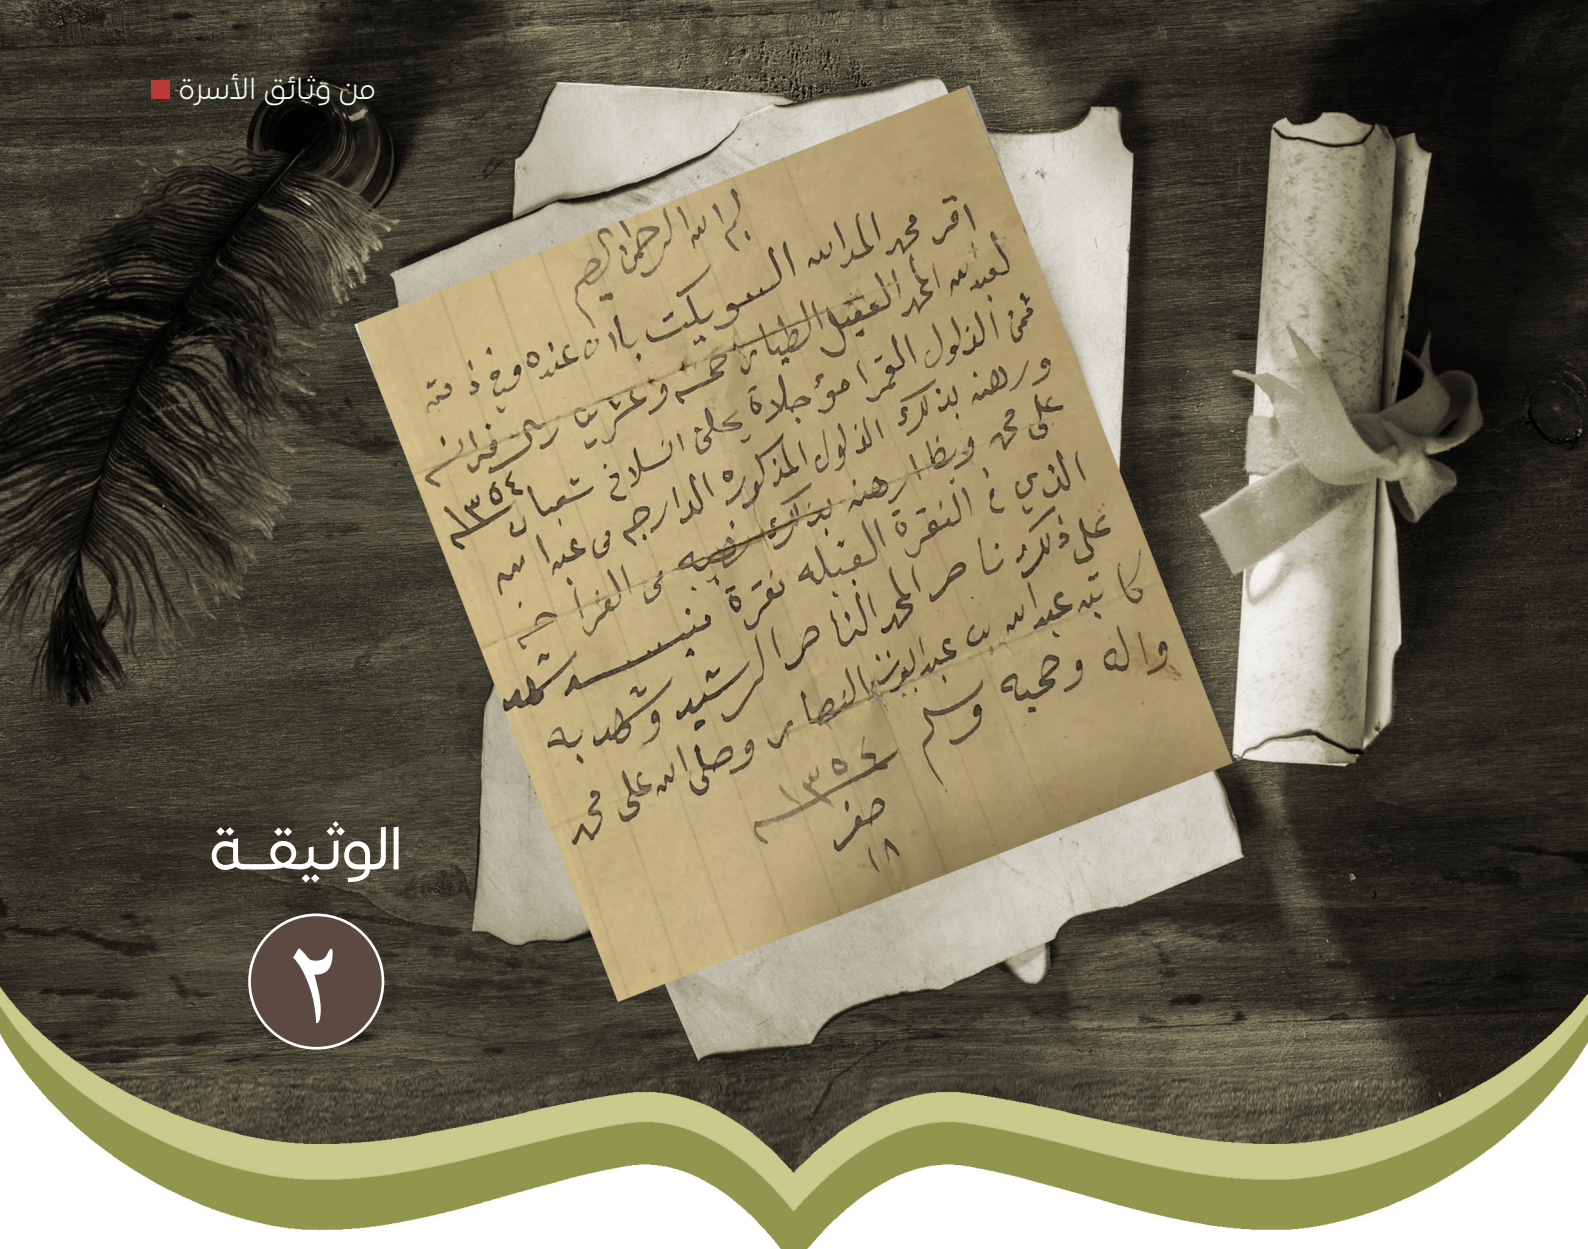 من وثائق الأسرة
بسم الله الرحمن الرحيم
اقر محمد العبدالله السويكت بان عنده وفي ذمته
لعبدالله المحمد العقيل الطيار خمسة وعشرين ريال فرانسه
ثمن الذلول القمرا مؤجلاة يحلن انسلاخ شعبان ١٣٥٤
ورهنه بذلك الذلول المذكوره الدارجه من عبدالله
على محمد وبظا رهنه بذلك نصيبه من الفراحة
الذي في النقرة القبله نقرة شهد
على ذلك ناصر المحمد الناصر الرشيد وشهد به
كاتبه عبدالله بن عبدالعزيز وصلى الله على محمد
واله وصحبه وسلم
١٣٥٤
صفر
١٨
الوثيقة
٢